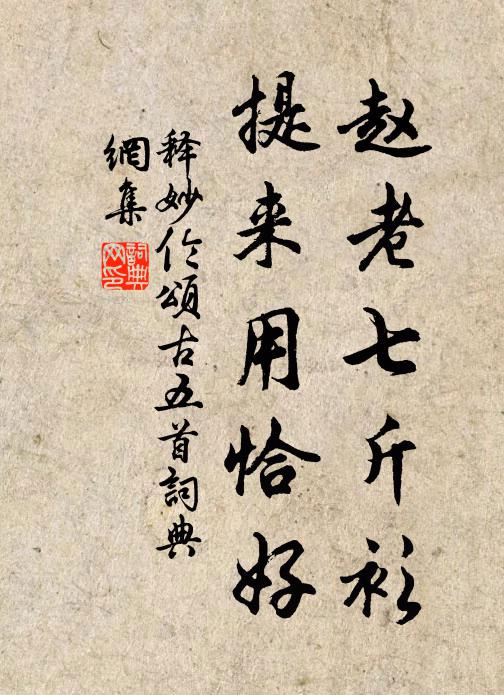 赵老七斤衫
提来用恰好
释妙伦颂古五首詞典
網集
詞典网印